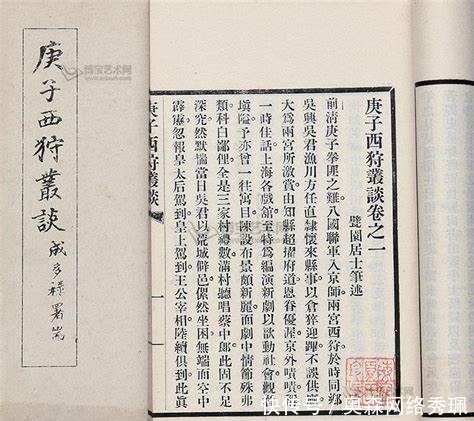 庚子西狩叢談
成多祿署耑
庚子西狩叢談卷之一
甓園居士筆述
前清庚子拳匪之難八國聯軍入京師兩宮西狩於時同鄉
吳興吳君漁川方任直隸懷來縣事以倉猝迎蹕不誤供應
大爲兩宮所激賞由知縣超擢府道恩眷優渥京外嘖嘖
一時佳話上海各戲館至特爲編演新劇以歆動社會觀
隘予亦曾一往寓目陳設布景頗新麗而劇中情節殊弗
類科白鄙俚全是三家村禮數滿村聽唱蔡中郎此固不足
深究然默憶當日吳君以荒城僻邑傫然坐困無端而空中
霹靂忽報皇太后駕到皇上駕到王公宰相陸續俱到
庚子西狩叢談
一
博宝艺术网
快传号/奥森网络秀珮